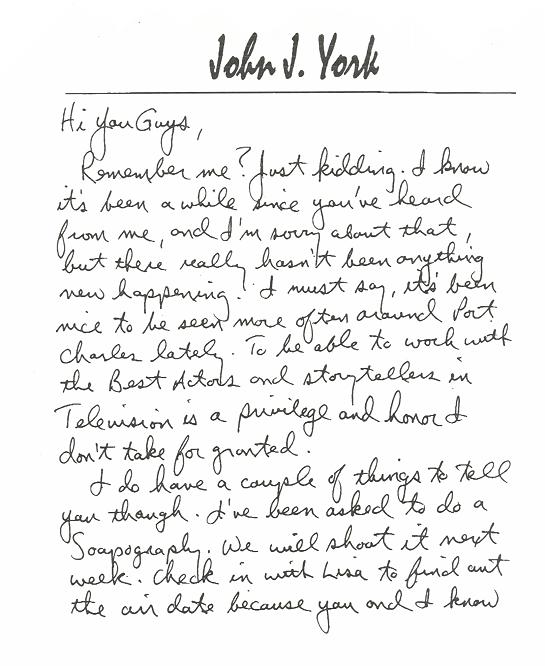 John J. York
Hi You Guys,
Remember me? Just kidding. I know
it's been a while since you've heard
from me, and I'm sorry about that,
but there really hasn't been anything
new happening. I must say, it's been
nice to be seen more often around Port
Charles lately. To be able to work with
the Best Actors and storytellers in
Television is a privilege and honor I
don't take for granted.
I do have a couple of things to tell
you though. I've been asked to do a
Soapography. We will shoot it next
week. Check in with Lisa to find out
the air date because you and I know